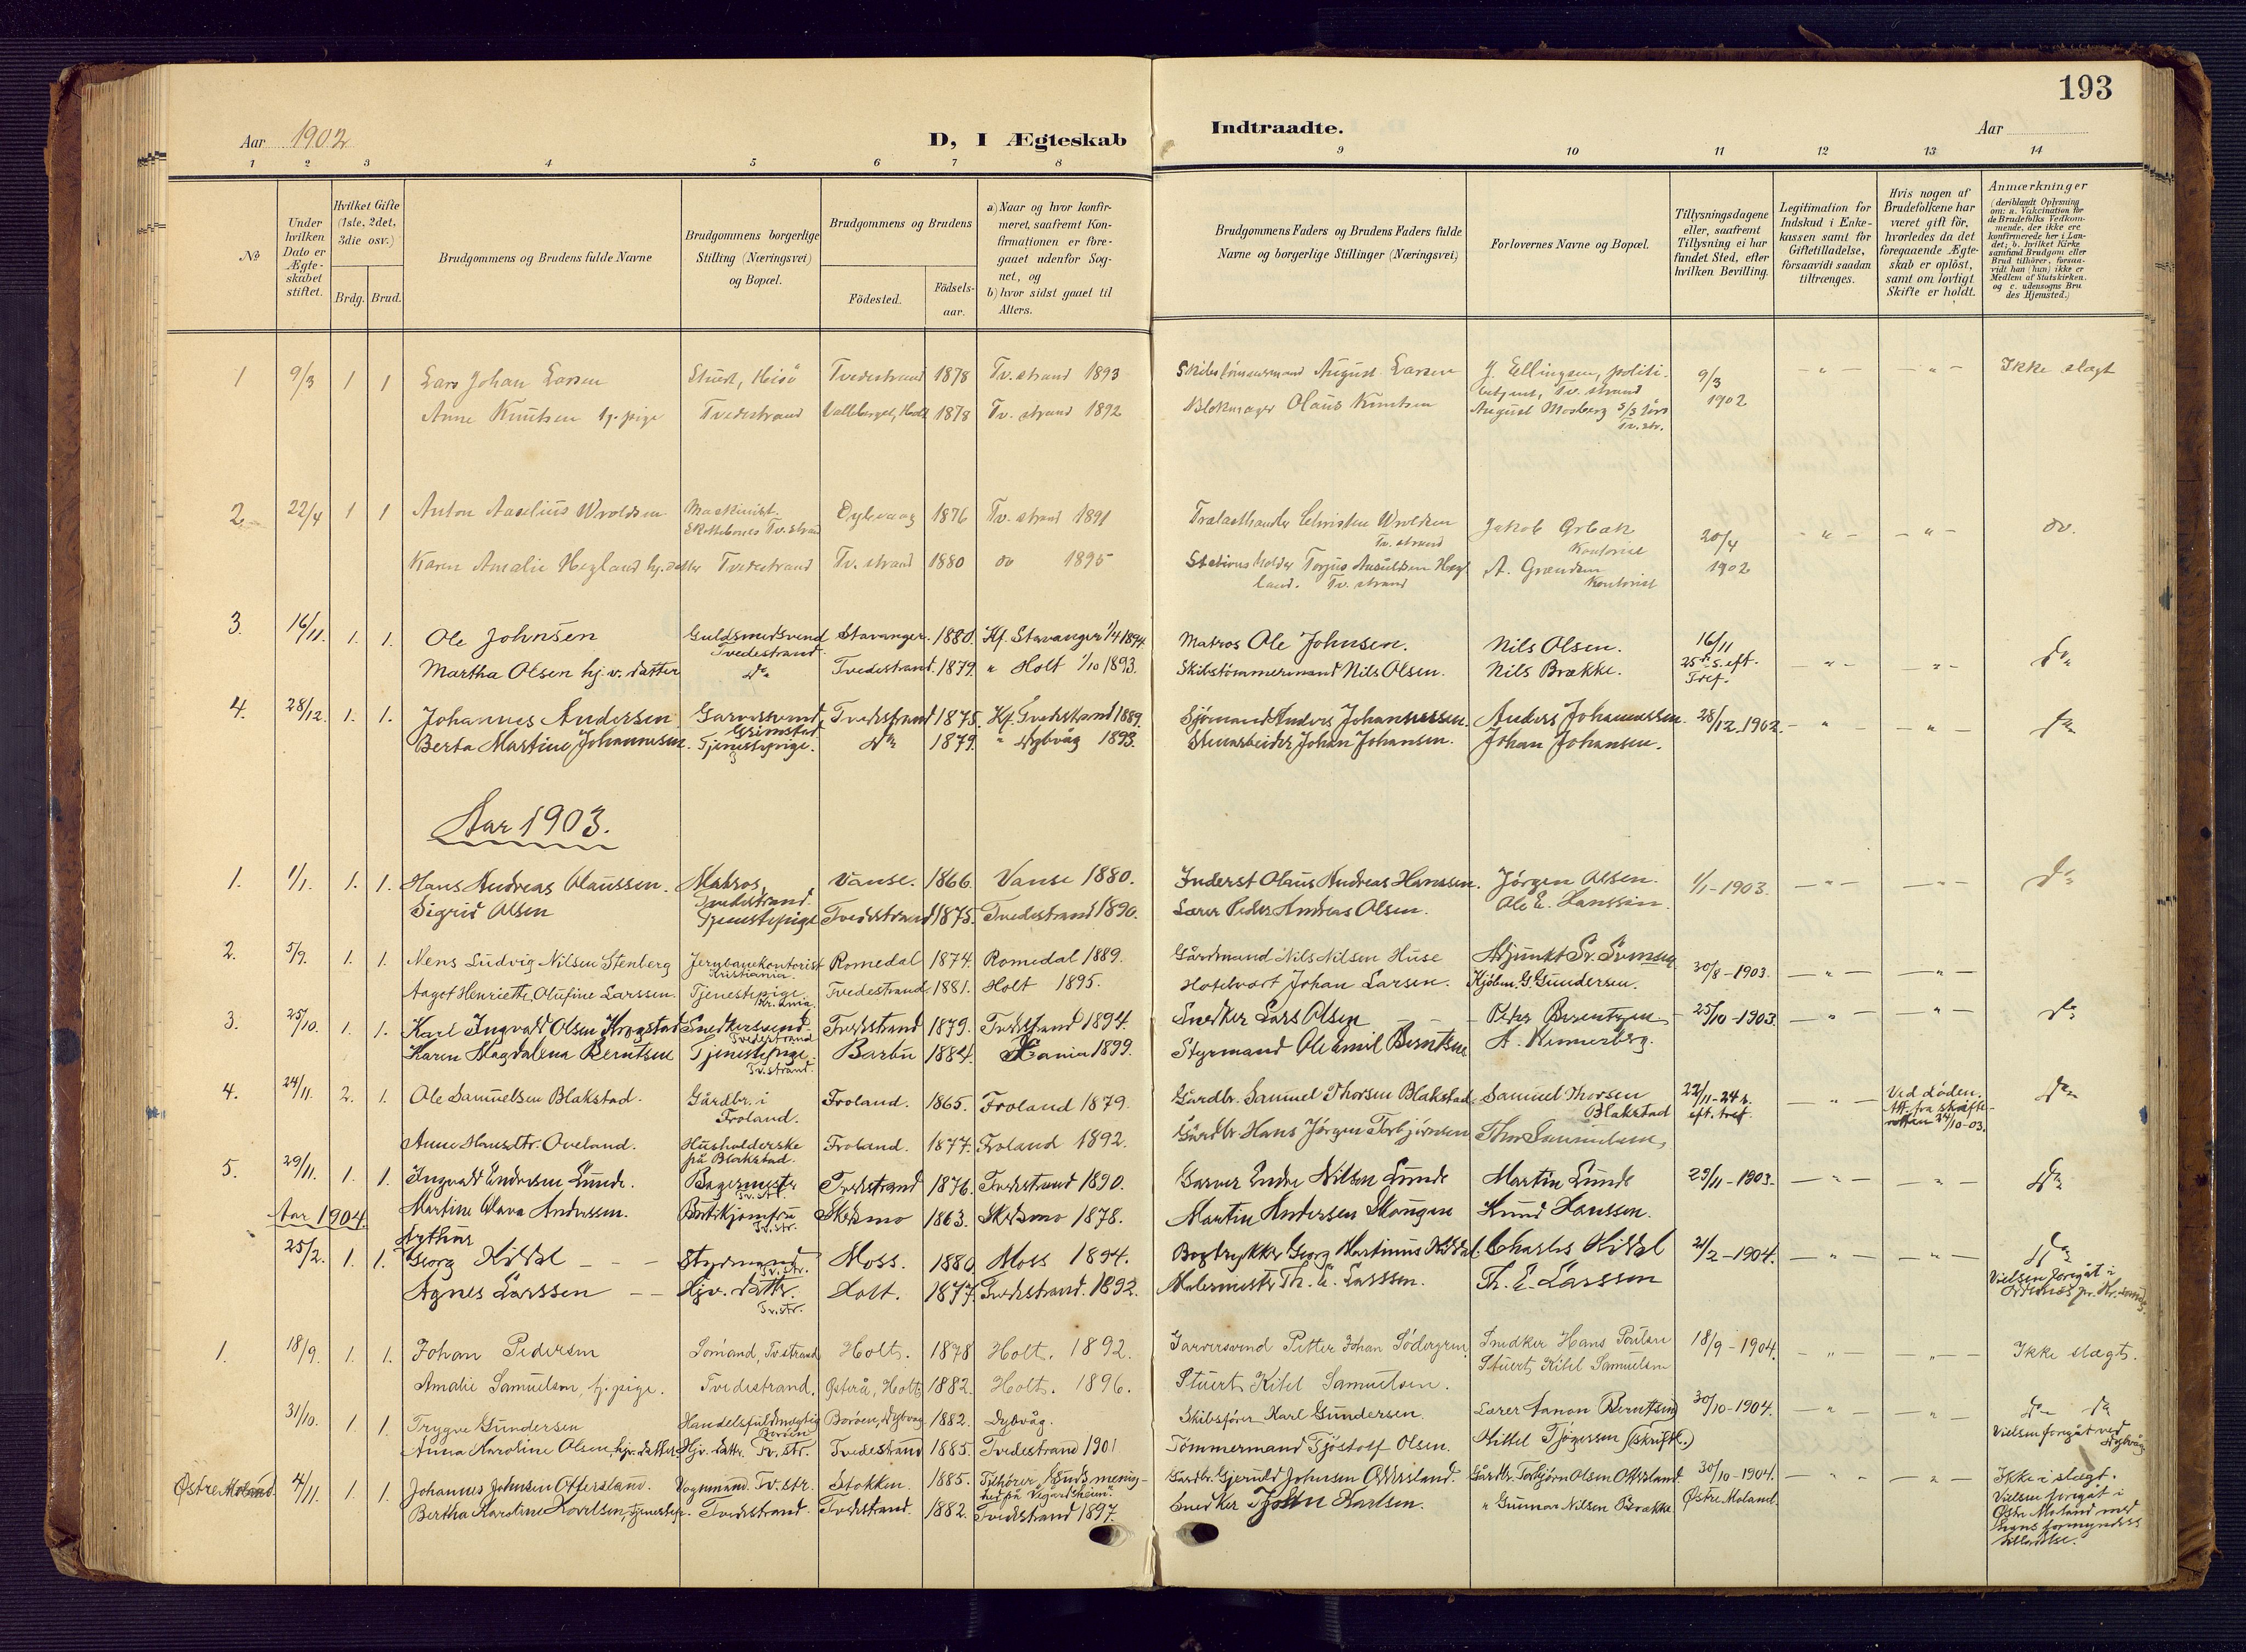 193
Aar 1902
D, I Ægteskab
Indtraadte.
Aar
1 2 3 4 5 6 7 8 9 10 11 12 13 14
№
Under hvilken Dato er Ægteskabet stiftet.
Hvilket Gifte (1ste, 2det, 3die osv.)
Brdg. Brud.
Brudgommens og Brudens fulde Navne
Brudgommens borgerlige Stilling (Næringsvei) og Bopæl.
Brudgommens og Brudens
Födested.
Födselsaar.
a) Naar og hvor konfirmeret, saafremt Konfirmationen er foregaaet udenfor Sognet., og
b) hvor sidst gaaet til Alters.
Brudgommens Faders og Brudens Faders fulde Navne og borgerlige Stillinger (Næringsvei)
Forlovernes Navne og Bopæl.
Tillysningsdagene eller, saafremt Tillysning ei har fundet Sted, efter hvilken Bevilling.
Legitimation for Indskud i Enkekassen samt for Giftetilladelse, forsaavidt saadan tiltrænges.
Hvis nogen af Brudefolkene har været gift för, hvorledes da det foregaaende Ægteskab er oplöst, samt om lovligt Skifte er holdt.
Anmærkninger (deriblandt Oplysning om: a. Vakcination for de Brudefolks Vedkommende, der ikke ere konfirmerede her i Landet; b. hvilket Kirkesamfund Brudgom eller Brud tilhörer, forsaavidt han (hun) ikke er Medlem af Statskirken. og c. udensogns Brudes Hjemsted.)
1 9/3 1 1 Lars Johan Larsen Stuert, Tvedestrand 1878 Tv. strand 1893 Skibstömmermand August Larsen J. Ellingsen, politibetjent, Tv. strand 9/3 1902 - " - - " - Ikke slægt
Anne Knutsen hj. pige Tvedestrand Holt 1878 Tv. strand 1892 Blokmager Olaus Knutsen August Mosberg Tv. str.
2 22/4 1 1 Anton Wroldsen Maskinist Tv. strand Dybvaag 1876 Tv. strand 1891 Christen Wroldsen Tv. strand Jakob Kontorist 20/4 1902 - " - - " - do.
Karen Amalie Hegland hj. datter Tvedestrand Tv. strand 1880 do 1895 Stationsholder Torjus Hegland. Tv. strand A. Kontorist
3. 16/11. 1. 1. Ole Johnsen Guldsmedsvend Tvedestrand. Stavanger. 1880. Kf. Stavanger 1/4 1894 Matros Ole Johnsen. Nils Olsen. 16/11 25de S. eft. Tref. - " - - " - do
Martha Olsen hj. v. datter do Tvedestrand. 1879. " Holt 1/10 1893. Skibstömmermand Nils Olsen. Nils Brække.
4. 28/12. 1. 1. Johannes Andersen Garversvend, Grimstad Tvedestrand 1875. Kf. Tvedestrand 1889. Sjömand Anders Johannessen. Anders Johannessen. 28/12. 1902. - " - - " - do
Berta Martine Johannesen. Tjenestepige. do 1879. " Dybvåg 1893. Stenarbeider Johan Johansen. Johan Johansen.
Aar 1903.
1. 1/1. 1. 1. Hans Andreas Olaussen. Matros, Tvedestrand. Vanse. 1866. Vanse 1880. Inderst Olaus Andreas Hanssen. Jörgen Olsen. 1/1-1903. - " - - " - do
Sigrid Olsen Tjenestepige Tvedestrand 1875. Tvedestrand 1890. Lærer Peder Andreas Olsen. Ole E. Hanssen.
2. 5/9. 1. 1. Nens Ludvig Nilsen Stenberg Jernbanekontorist Kristiania. Romedal 1874. Romedal 1889. Gårdmand Nils Nilsen Huse Adjunkt Sv. Svensen 30/8-1903. - " - - " -
Aagot Henriette Olufine Larssen. Tjenestepige Kr.ania. Tvedestrand. 1881. Holt 1895. Hotelvært Johan Larsen. Kjöbm. G. Gundersen.
3. 25/10. 1. 1. Karl Ingvald Olsen Krogstad Snedkersvend Tvedestrand Tvedestrand 1879. Tvedestrand 1894. Snedker Lars Olsen Peder Berentzen 25/10-1903. - " - - " - do
Karen Magdalena Berntsen Tjenestepige. Tv. strand. Barbu 1884. Kr.ania 1899. Styrmand Ole Emil Berntsen A. Wennerberg.
4. 24/11. 2. 1. Ole Samuelsen Blakstad. Gårdbr. i Froland. Froland. 1865. Froland 1879. Gårdbr. Samuel Thorsen Blakstad Samuel Thorsen Blakstad 22/11-24 s. eft. tref. - " - Ved döden. Att. fra skifteretten 24/10-03. do
Anne Hansdtr. Oveland. Husholderske på Blakstad. Froland. 1877. Froland 1892. Gårdbr. Hans Jörgen Torbjörnsen Thor Samuelsen,
5. 29/11. 1. 1. Ingvald Endresen Lunde. Bagermester Tv. str. Tvedestrand 1876. Tvedestrand 1890. Garver Endre Nilsen Lunde Martin Lunde 29/11-1903. - " - - " - do
Martine Olava Anderssen. Butikjomfru Tv. str. Skedsmo 1863. Skedsmo 1878. Martin Andersen Knud Hanssen.
Aar 1904
25/2. 1. 1. Arthur Georg Kittel Styrmand Tv. str. Moss. 1880. Moss 1894. Bogtrykker Georg Martinus Kittel. Charles Kittel 21/2-1904. - " - - " - do Vielsen foregåt i
Agnes Larssen Hjv. datter. Tv. str. Holt. 1877. Tvedestrand. 1892. Malermester Th. E. Larssen. Th. E. Larssen
1. 18/9. 1. 1. Johan Pedersen Sömand, Tvstrand Holt. 1878 Holt. 1892. Garversvend Petter Johan Södergren Snedker Hans Poulsen 18/9-1904. - " - - " - Ikke slægt.
Amalie Samuelsen, hj. pige. Tvedestrand. Østerå, Holt 1882. Holt. 1896. Stuert Kitel Samuelsen. Stuert Kitel Samuelsen
31/10. 1. 1. Trygve Gundersen Handelsfuldmægtig Boröen Boröen, Dybvag 1882. Dybvåg. Skibsförer Karl Gundersen. Lærer Aanon Berntsen 30/10-1904. - " - " do do Vielsen foregåt ved Dybvåg
Anna Karoline Olsen, hjv. datter Hjv. datter. Tv. str. Tvedestrand 1885. Tvedestrand 1901 Tömmermand Tjöstolf Olsen. Kittel Tjögersen (skriftl.)
Østre Moland. 4/11. 1. 1. Johannes Johnsen Ottersland. Vognmand. Tv. str. Stokken. 1885. Tilhörer Guds menighed på "Vegårdsheien". Gårdbr. Gjeruld Johnsen Ottersland. Gårdbr. Torbjörn Olsen Ottersland 30/10-1904. Østre Moland. - " - - " - Ikke i slægt. Vielsen foregåt i Østre Moland med hans formynders tilladelse.
Bertha Karoline Karlsen, tjenestep. Tvedestrand. Tvedestrand. 1882. Tvedestrand 1897. Snedker John Karlsen. " Gunnar Nilsen Brække